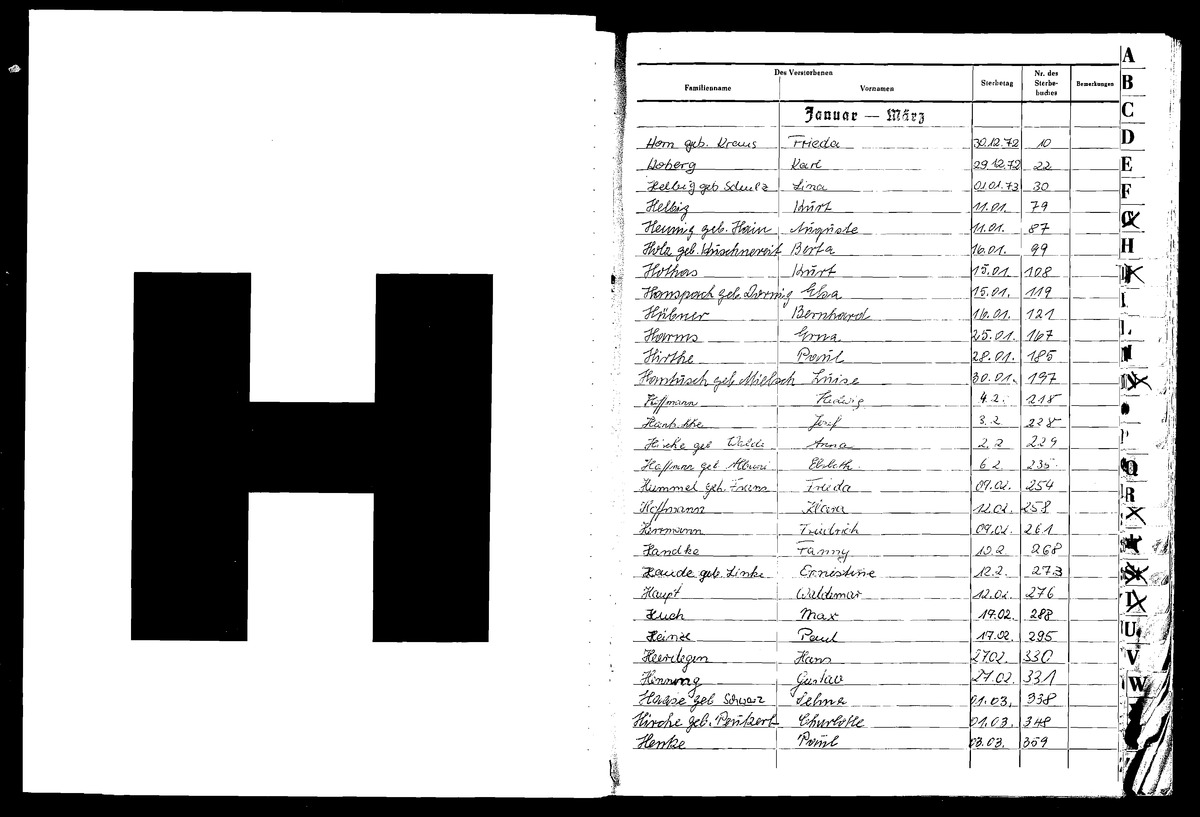 H
Des Verstorbenen
Familienname Vornamen Sterbetag Nr. des Sterbebuches Bemerkungen
Januar — März
Horn geb. Kraus Frieda 30.12.72 10
Hoberg Karl 29.12.72 22
Helbig geb Schulz Lina 01.01.73 30
Helbig Kurt 11.01. 79
Hennig geb. Hain Auguste 11.01. 87
Holz geb. Kuschnereit Berta 16.01. 99
Hothas Kurt 15.01. 108
geb. Elsa 15.01. 119
Hübner Bernhard 16.01. 121
Harms Erna 25.01. 167
Hirthe Paul 28.01. 185
Hantusch geb. Mielsch Luise 30.01. 197
Hoffmann Hedwig 4.2. 218
Josef 3.2. 228
Hirche geb Walde Anna 2.2 229
Hoffmann geb. Elsbeth 6.2. 235
Hummel geb. Franz Frieda 09.02. 254
Hoffmann Klara 12.02. 258
Herrmann Friedrich 09.02. 261
Handke Fanny 10.2. 268
Haude geb. Linke Ernestine 12.2. 273
Haupt Waldemar 12.02. 276
Huch Max 17.02. 288
Heinze Paul 17.02. 295
Heerdegen Hans 27.02. 330
Henning Gustav 27.02. 331
Haase geb Schwarz Selma 01.03. 338
Hirche geb. Peukert Charlotte 01.03. 348
Henke Paul 03.03. 359
A
B
C
D
E
F
G
H
I
L
N
P
Q
R
S
T
U
V
W